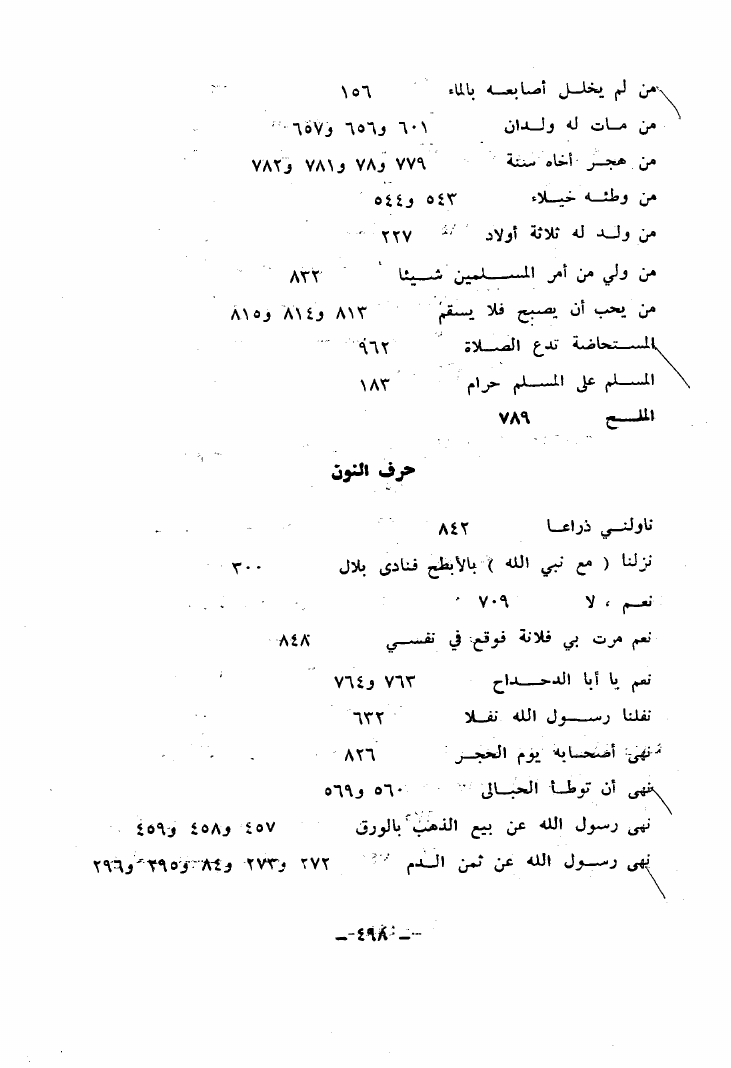 من لم يخلل أصابعه بالماء ١٥٦
من مات له ولدان ٦٠١ و٦٥٦ و٦٥٧
من هجر أخاه سنة ٧٧٩ و٧٨ و٧٨١ و٧٨٢
من وطئه خيلاء ٥٤٣ و٥٤٤
من ولد له ثلاثة أولاد ٢٢٧
من ولي من أمر المسلمين شيئا ٨٣٢
من يحب أن يصبح فلا يسقم ٨١٣ و٨١٤ و٨١٥
المستحاضة تدع الصلاة ٩٦٢
المسلم على المسلم حرام ١٨٣
الملح ٧٨٩
حرف النون
ناولني ذراعا ٨٤٢
نزلنا ( مع نبي الله ) بالأبطح فنادى بلال ٣٠٠
نعم ، لا ٧٠٩
نعم مرت بي فلانة فوقع في نفسي ٨٤٨
نعم يا أبا الدحداح ٧٦٣ و٧٦٤
نفلنا رسول الله نفلا ٦٣٢
نهى أصحابه يوم الحجر ٨٢٦
نهى أن توطأ الحبالى ٥٦٠ و٥٦٩
نهى رسول الله عن بيع الذهب بالورق ٤٥٧ و٤٥٨ و٤٥٩
نهى رسول الله عن ثمن الدم ٢٧٢ و٢٧٣ و٨٤ و٢٩٥ و٢٩٦
ــ ٤٩٨ ــ